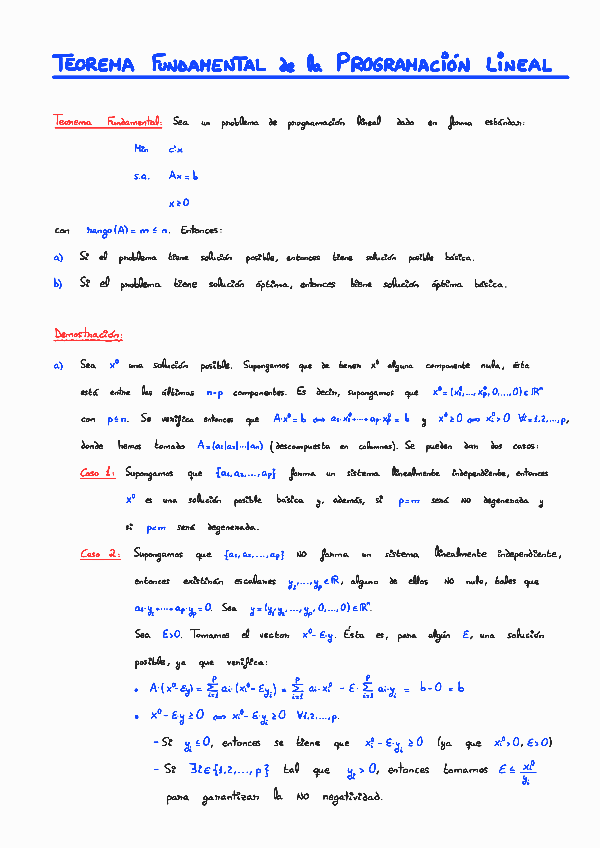 TEOREMA FUNDAMENTAL de la PROGRAMACIÓN LINEAL
Teorema Fundamental: Sea un problema de programación lineal dado en forma estándar:
Min cᵗx
s.a. Ax = b
x ≥ 0
con rango(A) = m ≤ n. Entonces:
a) Si el problema tiene solución posible, entonces tiene solución posible básica.
b) Si el problema tiene solución óptima, entonces tiene solución óptima básica.
Demostración:
a) Sea x⁰ una solución posible. Supongamos que de tener x⁰ alguna componente nula, ésta
está entre las últimas n-p componentes. Es decir, supongamos que x⁰=(x₁⁰,...,xₚ⁰,0,...,0)∈ℝⁿ
con p≤n. Se verifica entonces que A·x⁰=b ⟺ a₁·x₁⁰+···+aₚ·xₚ⁰=b y x⁰≥0 ⟺ xᵢ⁰>0 ∀i=1,2,...,p,
donde hemos tomado A=(a₁|a₂|···|aₙ) (descompuesta en columnas). Se pueden dan dos casos:
Caso 1: Supongamos que {a₁,a₂,...,aₚ} forma un sistema linealmente independiente, entonces
x⁰ es una solución posible básica y, además, si p=m será NO degenerada y
si p<m será degenerada.
Caso 2: Supongamos que {a₁,a₂,...,aₚ} NO forma un sistema linealmente independiente,
entonces existirán escalares y₁,...,yₚ∈ℝ, alguno de ellos NO nulo, tales que
a₁·y₁+···+aₚ·yₚ=0. Sea y=(y₁,y₂,...,yₚ,0,...,0)∈ℝⁿ.
Sea ε>0. Tomamos el vector x⁰-ε·y. Ésta es, para algún ε, una solución
posible, ya que verifica:
• A·(x⁰-εy) = ∑ᵢ₌₁ᵖ aᵢ·(xᵢ⁰-εyᵢ) = ∑ᵢ₌₁ᵖ aᵢ·xᵢ⁰ - ε·∑ᵢ₌₁ᵖ aᵢ·yᵢ = b-0 = b
• x⁰-ε·y ≥ 0 ⟺ xᵢ⁰-ε·yᵢ ≥ 0 ∀i,2,...,p.
- Si yᵢ ≤ 0, entonces se tiene que xᵢ⁰-ε·yᵢ ≥ 0 (ya que xᵢ⁰>0, ε>0)
- Si ∃i∈{1,2,...,p} tal que yᵢ > 0, entonces tomamos ε ≤ xᵢ⁰/yᵢ
para garantizar la NO negatividad.